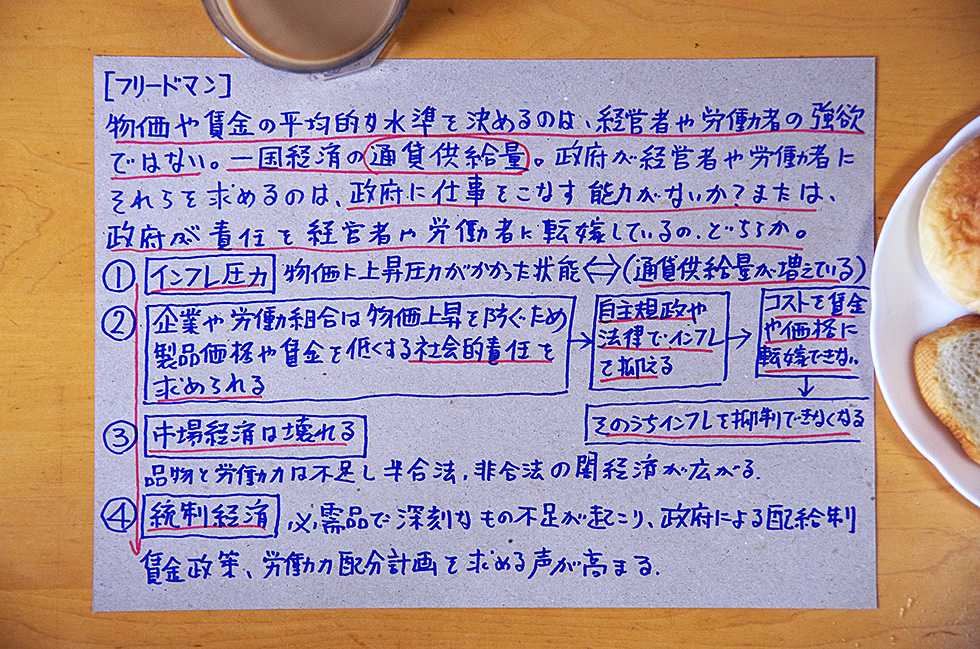 [フリードマン]
物価や賃金の平均的な水準を決めるのは、経営者や労働者の強欲
ではない。一国経済の通貨供給量。政府が経営者や労働者に
それらを求めるのは、政府に仕事をこなす能力がないか?または、
政府が責任を経営者や労働者に転嫁しているの、どちらか。
① インフレ圧力 物価に上昇圧力がかかった状態⇔(通貨供給量が増えている)
② 企業や労働組合は物価上昇を防ぐため
製品価格や賃金を低くする社会的責任を
求められる
→ 自主規政や
法律でインフレ
を抑える
→ コストを賃金
や価格に
転嫁できない。
↓
そのうちインフレを抑制できなくなる
③ 市場経済は壊れる
品物と労働力は不足し半合法、非合法の闇経済が広がる.
④ 統制経済 必需品で深刻なもの不足が起こり、政府による配給制
賃金政策、労働力配分計画を求める声が高まる.